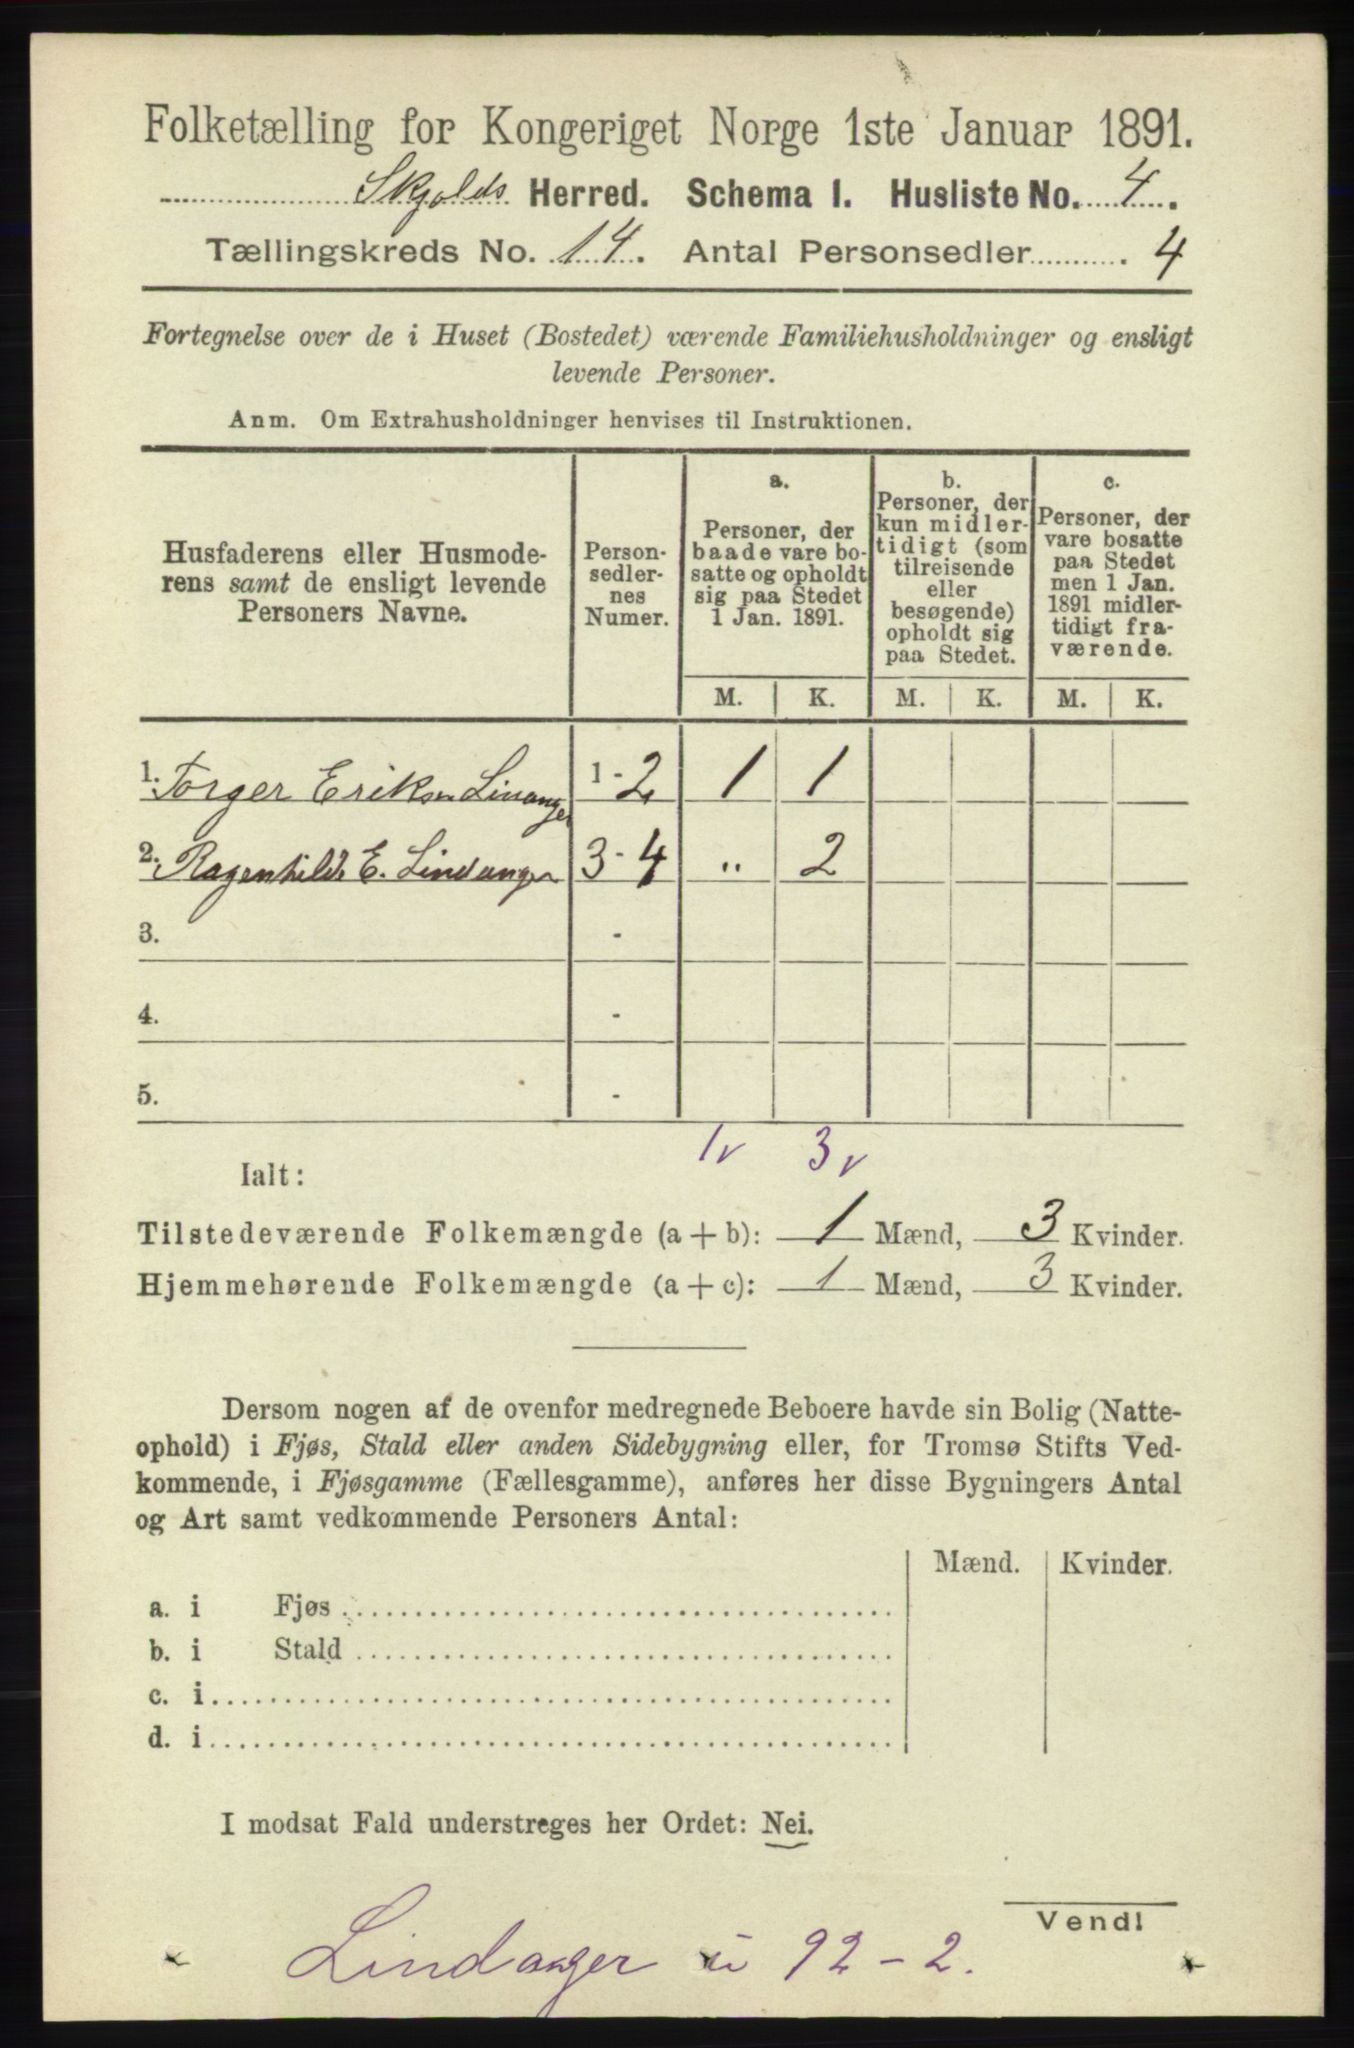 Folketælling for Kongeriget Norge 1ste Januar 1891.
Skjolds Herred. Schema I. Husliste No. 4.
Tællingskreds No. 14. Antal Personsedler . 4
Fortegnelse over de i Huset (Bostedet) værende Familiehusholdninger og ensligt
levende Personer.
Anm. Om Extrahusholdninger henvises til Instruktionen.
Husfaderens eller Husmode-
rens samt de ensligt levende
Personers Navne.
Person-
sedler-
nes
Numer.
a.
Personer, der
baade vare bo-
satte og opholdt
sig paa Stedet
1 Jan. 1891.
b.
Personer, der
kun midler-
tidigt (som
tilreisende
eller
besøgende)
opholdt sig
paa Stedet.
c.
Personer, der
vare bosatte
paa Stedet
men 1 Jan.
1891 midler-
tidigt fra-
værende.
M. K. M. K. M. K.
1. Torger Eriksen Linanger 1 - 2 1 1
2. Ragenhilde E. Lindanger 3 - 4 " 2
3. -
4. -
5. -
1 v 3 v
Ialt:
Tilstedeværende Folkemængde (a + b): 1 Mænd, 3 Kvinder.
Hjemmehørende Folkemængde (a + c): 1 Mænd, 3 Kvinder.
Dersom nogen af de ovenfor medregnede Beboere havde sin Bolig (Natte-
ophold) i Fjøs, Stald eller anden Sidebygning eller, for Tromsø Stifts Ved-
kommende, i Fjøsgamme (Fællesgamme), anføres her disse Bygningers Antal
og Art samt vedkommende Personers Antal:
Mænd. Kvinder.
a. i Fjøs
b. i Stald
c. i
d. i
I modsat Fald understreges her Ordet: Nei.
Vend!
92 - 2.